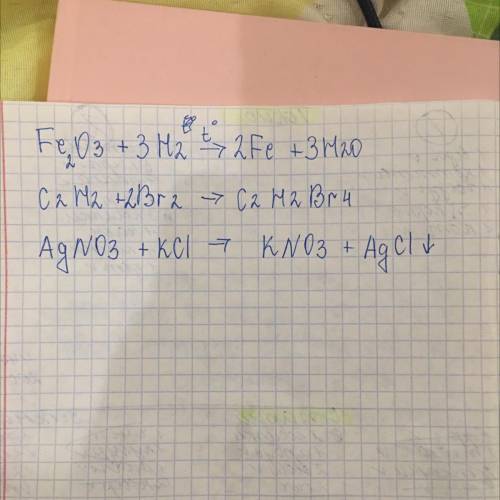 Fe2O3 + 3H2 t° → 2Fe + 3H2O
C2H2 + 2Br2 → C2H2Br4
AgNO3 + KCl → KNO3 + AgCl↓